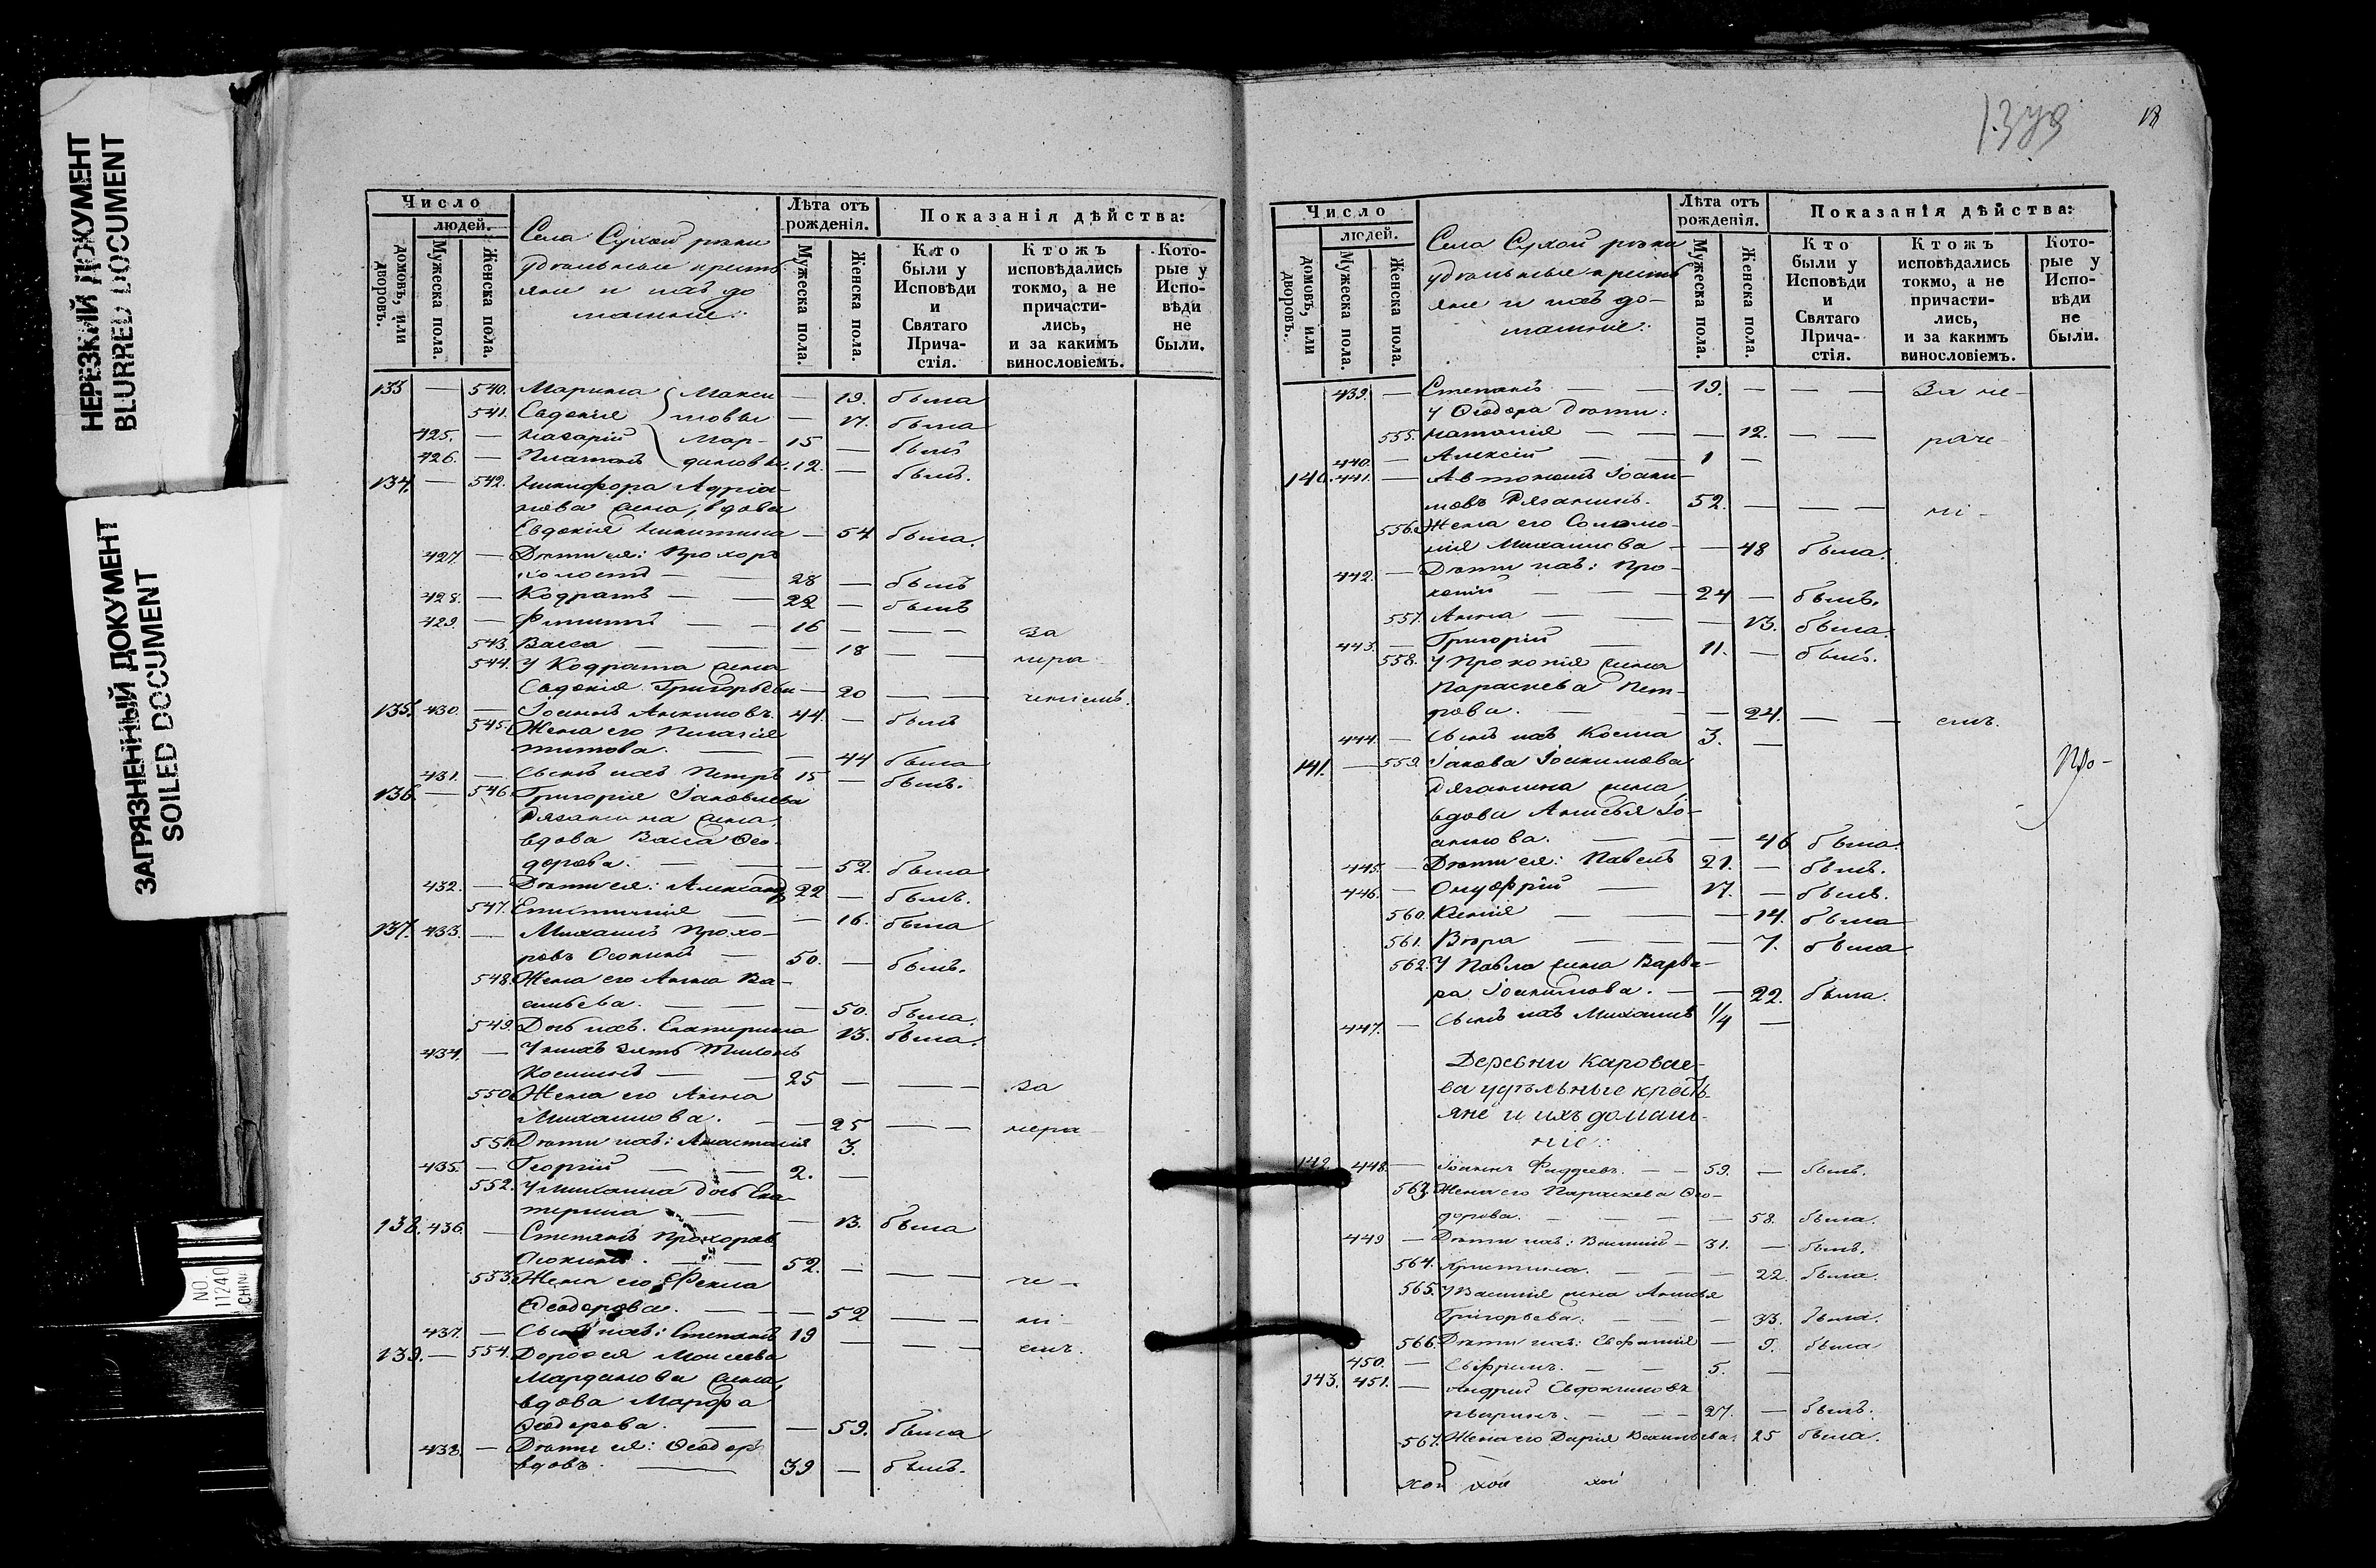 НЕРЕЗКИЙ ДОКУМЕНТ
BLURRED DOCUMENT
ЗАГРЯЗНЕННЫЙ ДОКУМЕНТ
SOILED DOCUMENT
NO.
11240
CHINA
Число
людей.
домовъ, или дворовъ.
Мужеска пола.
Женска пола.
Села Сухой рѣки
удѣльные кресть
яне и ихъ до
машніе:
Лѣта отъ рожденія.
Мужеска пола.
Женска пола.
Показанія дѣйства:
Кто были у Исповѣди и Святаго Прича-стія.
Ктожъ исповѣдались токмо, а не причасти-лись, и за какимъ винословіемъ.
Кото-рые у Испо-вѣди не были.
133 — 540. Марина Макси — 19. была
541. Евдокія мовы — 17. была
425. — Назарій Мар- 15 — былъ
426. — Платонъ диновы. 12. — былъ.
134. — 542. Никифора Адріа-
нова жена, вдова
Евдокія Никитина — 54 была.
427. — Дѣти ея: Прохоръ
холостъ — — 28 — былъ
428. — Кодратъ — — 22 — былъ
429. — Филиппъ — — 16 — — — за
543. Васса — — — 18 — — нера
544. У Кодрата жена
Евдокія Григорьева — 20 — — чніемъ.
135. 430. — Іоаннъ Акимовъ. 44. — былъ
545. Жена его Пелагія
Титова. — — 44 была
431. — Сынъ ихъ Петръ 15 — былъ.
136. — 546. Григорія Іаковлева
Рязанина жена,
вдова Васса Ѳео-
дорова. — — 52. была
432. — Дѣти ея: Александръ 22 — былъ.
547. Епистимія — — 16. была
137. 433. — Михаилъ Прохо-
ровъ Осокинъ — 50. — былъ.
548. Жена его Анна Ва-
сильева. — — — 50. была.
549. Дочь ихъ. Екатерина 13. была.
434. — У нихъ зять Тихонъ
Косминъ — — 25 — — — за
550. Жена его Анна
Михаилова. — — 25 — — нера
551. Дѣти ихъ: Анастасія 3.
435. — Георгій — — 2. —
552. У Михаила дочь Ека-
терина — — 13. была
138. 436. — Стефанъ Прохоровъ
Осокинъ. — — 52. — — — че —
553. Жена его Ѳекла
Ѳеодорова. — — — 52 — — ні-
437. — Сынъ ихъ: Степанъ 19 — — — емъ.
139. — 554. Дороѳея Моисеева
Мардинова жена,
вдова Марѳа
Ѳеодорова. — — 59. была
438. — Дѣти ея: Ѳеодоръ
вдовъ. — 39 — былъ.
1373
18
Число
людей.
домовъ, или дворовъ.
Мужеска пола.
Женска пола.
Села Сухой рѣки
удѣльные кресть
яне и ихъ до-
машніе:
Лѣта отъ рожденія.
Мужеска пола.
Женска пола.
Показанія дѣйства:
Кто были у Исповѣди и Святаго Прича-стія.
Ктожъ исповѣдались токмо, а не причасти-лись, и за какимъ винословіемъ.
Кото-рые у Испо-вѣди не были.
439. — Степанъ — — 19. — — — За не-
У Ѳеодора дѣти:
555. Наталія — — — 12. — — раче-
440. — Алексій — — 1 —
140. 441. — Автономъ Іоаки-
мовъ Рязанинъ. 52. — — — ні-
556. Жена его Соломо-
нія Михаилова — — 48 была.
442. — Дѣти ихъ: Про-
копій — — — 24 — былъ.
557. Анна — — — 13. была.
443. — Григорій — 11. — былъ.
558. У Прокопія жена
Параскева Пет-
рова. — — 24. — — емъ.
444. — Сынъ ихъ Косма 3. —
141. — 559. Іакова Іоакимова
Рязанина жена
вдова Анисья Іо-
аннова. — — — 46 была.
Про-
445. — Дѣти ея: Павелъ 21. — былъ.
446. — Онуфрій — 17. — былъ.
560. Ксенія — — — 14. была
561. Вѣра — — — 7. была
562. У Павла жена Варва-
ра Іоакимова. — — 22. была.
447. — Сынъ ихъ Михаилъ 1/4 —
Деревни Каровае-
ва удѣльные кресть-
яне и ихъ домаш-
ніе:
142. 448. — Іоаннъ Фаддеевъ. — — 59. — былъ.
563. Жена его Параскева Ѳео-
дорова. — — — — 58. была.
449 — Дѣти ихъ: Василій — 31. — былъ.
564. Христина. — — — 22. была.
565. У Василія жена Анисья
Григорьева. — — — 33. была.
566. Дѣти ихъ: Евфимія — 9. была
450. — Ефремъ. — — 5. —
143. 451. — Андрей Евдокимовъ
— — 27. — былъ.
567. Жена его Дарія Васильева. 25 была.
хой хой хой